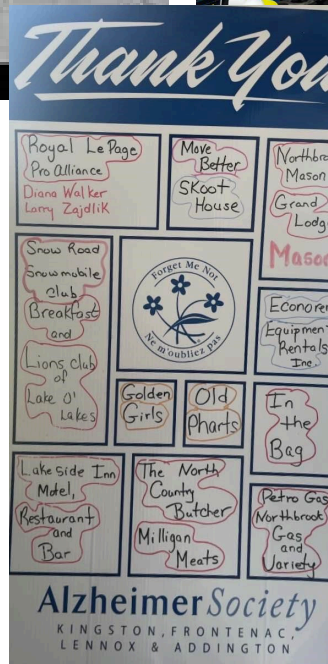 Thank You
Royal Le Page
Pro Alliance
Diana Walker
Larry Zajdlik
Move
Better
SKoot
House
Northbro
Mason
Grand
Lodg
Snow Road
Snowmobile
Club
Breakfast
and
Lions club
of
Lake O'
Lakes
Forget Me Not
Ne m'oubliez pas
Equipmen
Rentals
Inc
Golden
Girls
Old
Pharts
In
the
Bag
Lake side Inn
Motel,
Restaurant
and
Bar
The North
County
Butcher
Milligan
Meats
Petro Gas
Northbrook
Gas
and
Variety
Alzheimer Society
KINGSTON, FRONTENAC,
LENNOX & ADDINGTON